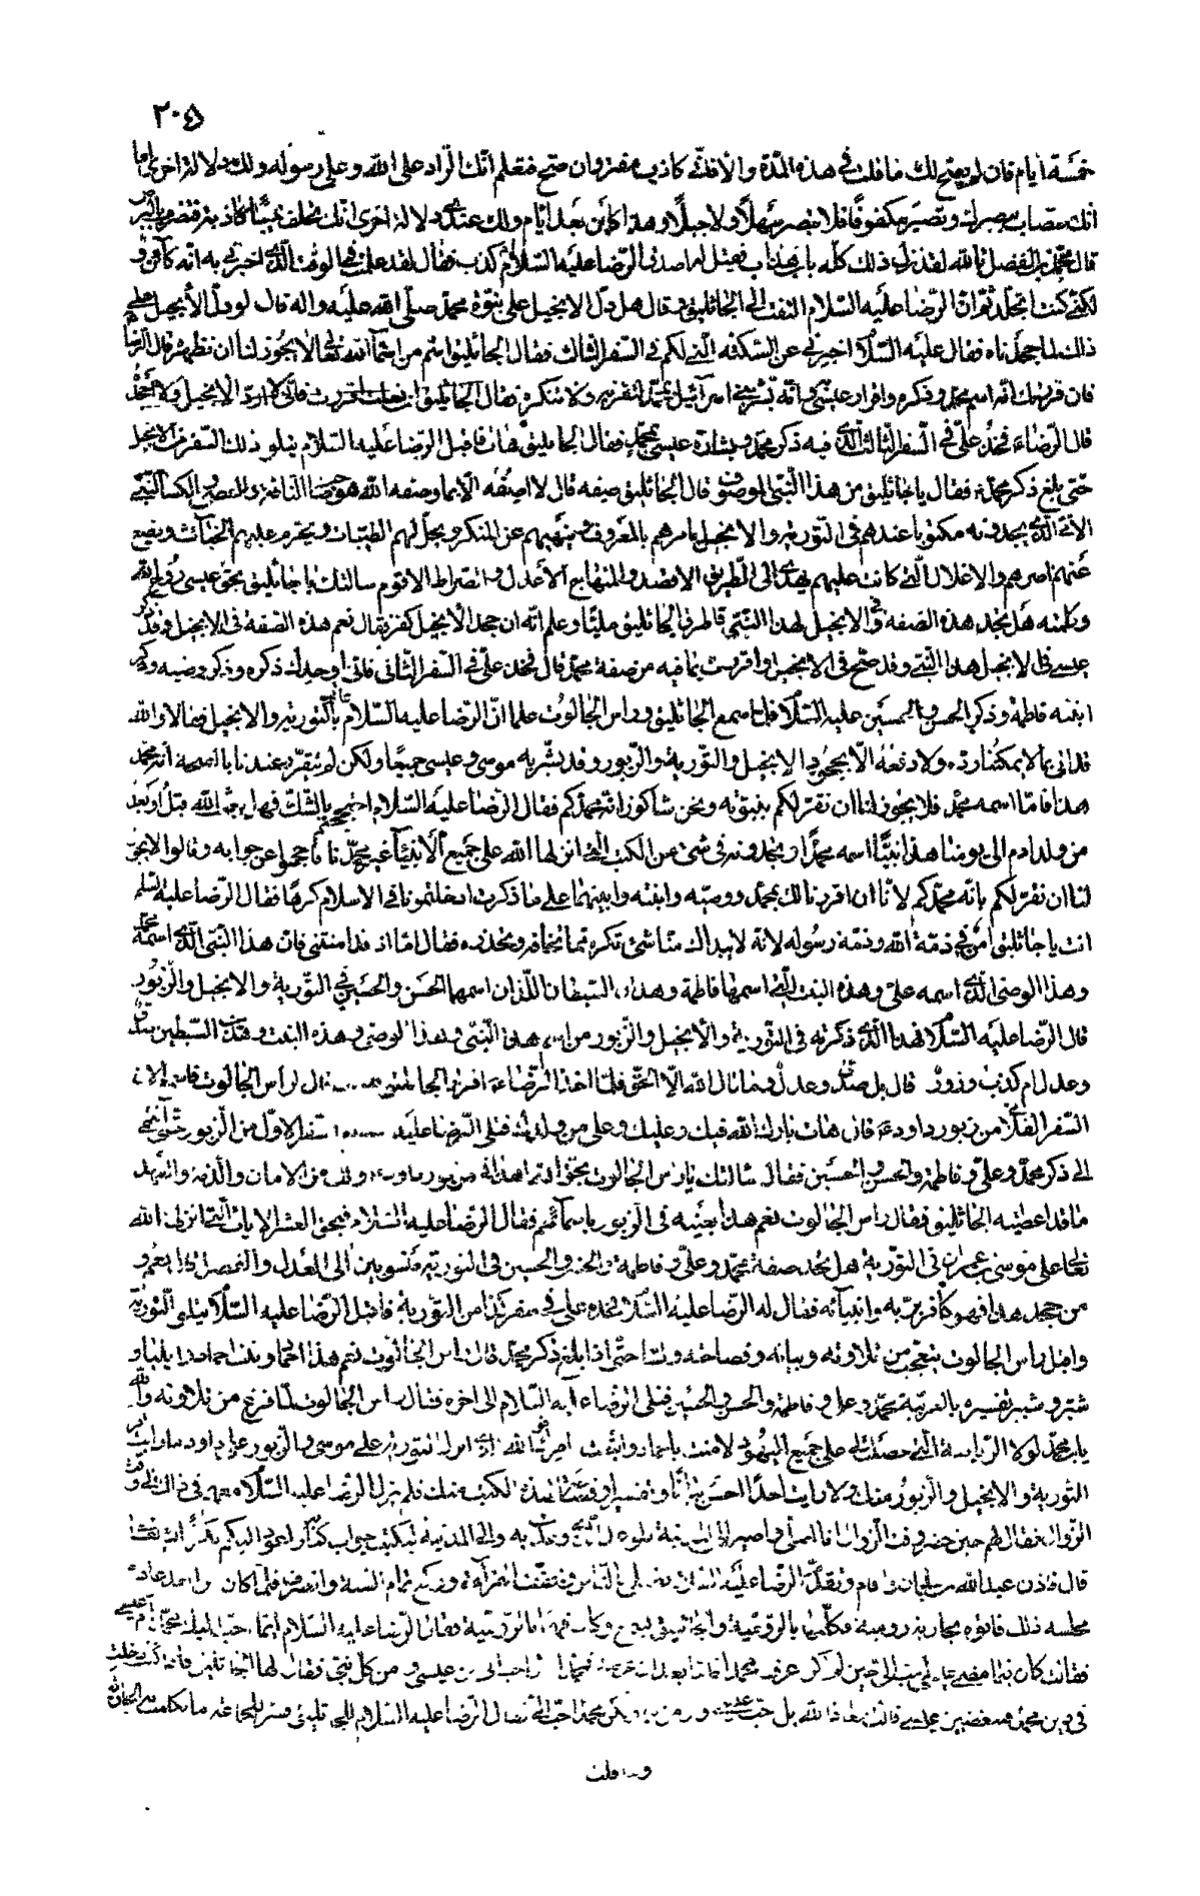 ٢٠٥
خمسة ايام فان لم يصح لك ما قلت في هذه المدة والا فانك كاذب مفتر وان صح فتعلم انك الراد على الله وعلى رسوله ولك دلالة اخرى اما
انك ستصاب ببصرك وتصير مكفوفا فلا تبصر سهلا ولا جبلا وهذا كائن بعد ايام ولك عندي دلالة اخرى انك تحلف يمينا كاذبة فتضرب بالبرص
قال محمد بن الفضل تالله لقد نزل ذلك كله بابن هذاب فقيل له اصدق الرضا عليه السلام ام كذب فقال لقد علمت في الوقت الذي اخبرني به انه كائن و
لكني كنت اتجلد ثم ان الرضا عليه السلام التفت الى الجاثليق وقال هل دل الانجيل على نبوة محمد صلى الله عليه واله قال لو دل الانجيل على
ذلك لما جحدناه فقال عليه السلام اخبرني عن السكتة التي لكم في السفر الثالث فقال الجاثليق اسم من اسماء الله تعالى لا يجوز لنا ان نظهره قال الرضا
فان قررتك انه اسم محمد وذكره واقرار عيسى به وانه بشر بني اسرائيل بمحمد لتقر به ولا تنكره فقال الجاثليق ان فعلت اقررت فاني لا ارد الانجيل ولا اجحد
قال الرضا ع فخذ علي في السفر الثالث الذي فيه ذكر محمد وبشارة عيسى بمحمد فقال الجاثليق هات فاقبل الرضا عليه السلام يتلو ذلك السفر من الانجيل
حتى بلغ ذكر محمد ص فقال يا جاثليق من هذا النبي الموصوف قال الجاثليق صفه قال لا اصفه الا بما وصفه الله هو صاحب الناقة والعصا والكساء النبي
الامي الذي يجدونه مكتوبا عندهم في التورية والانجيل يامرهم بالمعروف وينهيهم عن المنكر ويحل لهم الطيبات ويحرم عليهم الخبائث ويضع
عنهم اصرهم والاغلال التي كانت عليهم يهدي الى الطريق الاقصد والمنهاج الاعدل والصراط الاقوم سالتك يا جاثليق بحق عيسى روح الله
وكلمته هل تجد هذه الصفة في الانجيل لهذا النبي فاطرق الجاثليق مليا وعلم انه ان جحد الانجيل كفر فقال نعم هذه الصفة في الانجيل وقد ذكر
عيسى في الانجيل هذا النبي وقد صح في الانجيل واقررت بما فيه من صفة محمد قال فخذ علي في السفر الثاني فاني اوجدك ذكره وذكر وصيه وذكر
ابنته فاطمة وذكر الحسن والحسين عليهم السلام فلما سمع الجاثليق وراس الجالوت علما ان الرضا عليه السلام عالم بالتورية والانجيل فقالا والله
قد اتى بما لا يمكننا رده ولا دفعه الا بجحود الانجيل والتورية والزبور وقد بشر به موسى وعيسى جميعا ولكن لم يتقرر عندنا بالصحة انه محمد
هذا فاما اسمه محمد فلا يجوز لنا ان نقر لكم بنبوته ونحن شاكون انه محمدكم فقال الرضا عليه السلام احتججتم بالشك فهل بعث الله قبل او بعد
من ولد ادم الى يومنا هذا نبيا اسمه محمد او تجدونه في شيء من الكتب التي انزلها الله على جميع الانبياء غير محمد نا فاحجموا عن جوابه وقالوا لا يجوز
لنا ان نقر لكم بانه محمدكم لانا ان اقررنا لك بمحمد ووصيه وابنته وابنيهما على ما ذكرت ادخلتمونا في الاسلام كرها فقال الرضا عليه السلام
انت يا جاثليق امن في ذمة الله وذمة رسوله لانه لا يبداك منا شيء تكره مما تخافه وتحذره فقال اما اذ قد امنتني فان هذا النبي الذي اسمه محمد
وهذا الوصي الذي اسمه علي وهذه البنت التي اسمها فاطمة وهذان السبطان اللذان اسمهما الحسن والحسين في التورية والانجيل والزبور
قال الرضا عليه السلام فهذا الذي ذكرته في التورية والانجيل والزبور من اسم هذا النبي وهذا الوصي وهذه البنت وهذين السبطين صدق
وعدل ام كذب وزور قال بل صدق وعدل وما قال الله الا الحق فلما اخذ الرضا ع اقرار الجاثليق قال لراس الجالوت فاسمع الان
السفر الفلاني من زبور داود ع قال هات بارك الله فيك وعليك وعلى من ولدك فتلى الرضا عليه السفر الاول من الزبور حتى انتهى
الى ذكر محمد وعلي وفاطمة والحسن والحسين فقال سالتك يا راس الجالوت بحق الله اهذا في زبور داود ولك من الامان والذمة والعهد
ما قد اعطيته الجاثليق فقال راس الجالوت نعم هذا بعينه في الزبور باسمائهم فقال الرضا عليه السلام فبحق العشر الايات التي انزلها الله
تعالى على موسى بن عمران في التورية هل تجد صفة محمد وعلي وفاطمة والحسن والحسين في التورية منسوبين الى العدل والفضل قال نعم و
من جحد هذا فهو كافر بربه وانبيائه فقال له الرضا عليه السلام فخذ علي في سفر كذا من التورية فاقبل الرضا عليه السلام يتلو التورية
واقبل راس الجالوت يتعجب من تلاوته وبيانه وفصاحته ولسانه حتى اذا بلغ ذكر محمد قال راس الجالوت نعم هذا احماد وبنت احماد وايليا و
شبر وشبير تفسيره بالعربية محمد وعلي وفاطمة والحسن والحسين فتلى الرضا عليه السلام الى اخره فقال راس الجالوت لما فرغ من تلاوته والله
يابن محمد لولا الرياسة التي حصلت لي على جميع اليهود لامنت باحمد واتبعت امرك فوالله الذي انزل التورية على موسى والزبور على داود ما رايت اقرأ
التورية والانجيل والزبور منك ولا رايت احدا احسن بيانا وتفسيرا وفصاحة لهذه الكتب منك فلم يزل الرضا عليه السلام معهم في ذلك الى وقت
الزوال فقال لهم حين حضر وقت الزوال انا اصلي واصير الى المدينة للوعد الذي وعدت به والي المدينة ليكتب جواب كتابه واعود اليكم بكرة ان شاء الله
قال فاذن عبد الله بن سليمان واقام وتقدم الرضا عليه السلام فصلى بالناس وخفف القراءة وركع تمام السنة وانصرف فلما كان من الغد عاد الى
مجلسه ذلك فاتوه بجارية رومية فكلمها بالرومية والجاثليق يسمع وكان فهما بالرومية فقال الرضا عليه السلام ايما احب اليك محمد ام عيسى
فقالت كان فيما مضى عيسى احب الي حين لم اكن عرفت محمدا فاما بعد ان عرفت محمدا فمحمد احب الي من عيسى ومن كل نبي فقال لها الجاثليق فاذا كنت دخلت
في دين محمد فتبغضين عيسى قالت معاذ الله بل احب عيسى وأومن به ولكن محمدا احب الي فقال الرضا عليه السلام للجاثليق فسر للجماعة ما تكلمت به الجارية
وما قلت